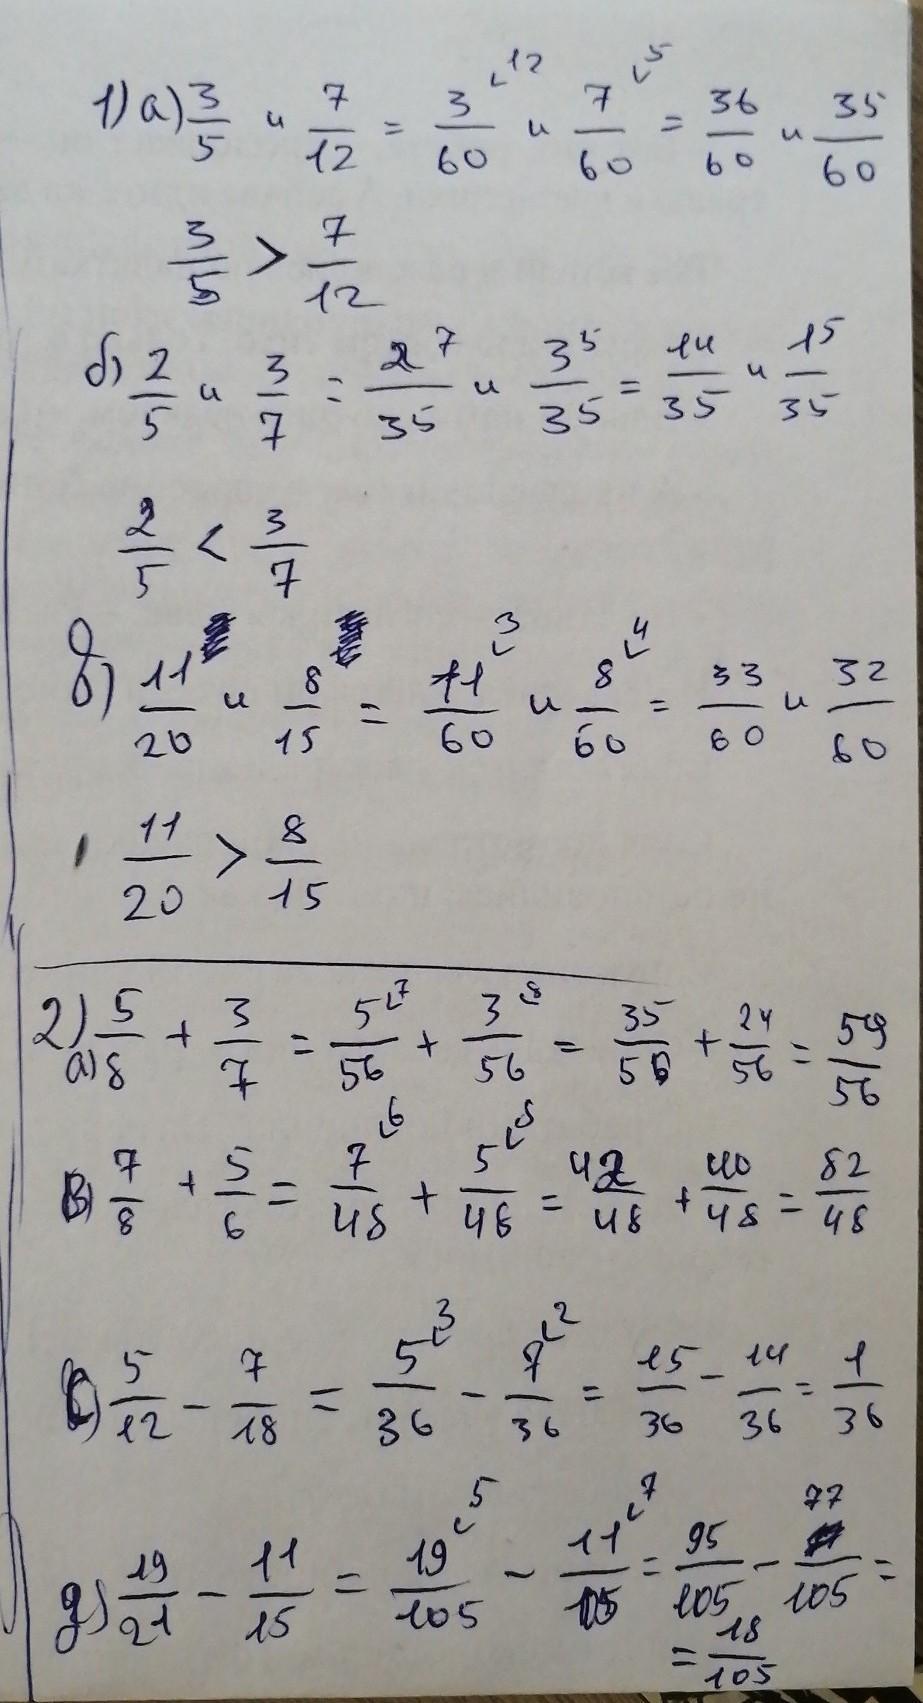 1) а) 3/5 и 7/12 = 3/60 ⌞12 и 7/60 ⌞5 = 36/60 и 35/60
3/5 > 7/12
б) 2/5 и 3/7 = 2/35 7 и 3/35 5 = 14/35 и 15/35
2/5 < 3/7
в) 11/20 и 8/15 = 11/60 ⌞3 и 8/60 ⌞4 = 33/60 и 32/60
11/20 > 8/15
2) а) 5/8 + 3/7 = 5/56 ⌞7 + 3/56 ⌞8 = 35/56 + 24/56 = 59/56
в) 7/8 + 5/6 = 7/48 ⌞6 + 5/48 ⌞8 = 42/48 + 40/48 = 82/48
в) 5/12 - 7/18 = 5/36 ⌞3 - 7/36 ⌞2 = 15/36 - 14/36 = 1/36
д) 19/21 - 11/15 = 19/105 ⌞5 - 11/105 ⌞7 = 95/105 - 77/105 =
= 18/105